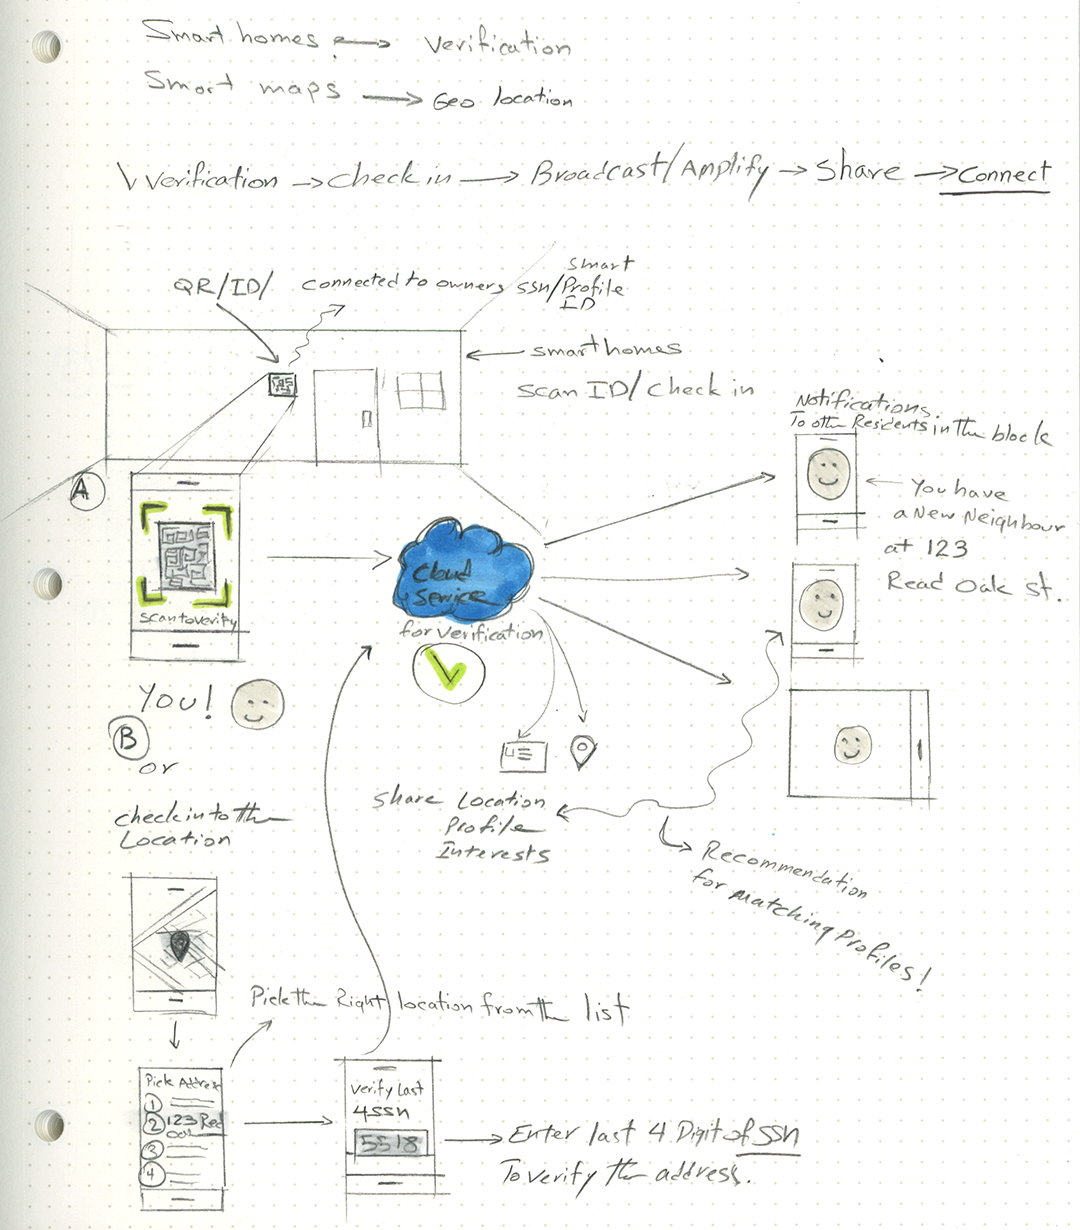 Smart homes → Verification
Smart maps → Geo location
Verification → Check in → Broadcast/Amplify → Share → Connect
QR/ID/ connected to owners SSN/Profile
Smart
ID
smart homes
Scan ID/ Check in
Notifications.
To other Residents in the block
A
You have
a New Neighbour
at 123
Read Oak St.
Cloud
Service
for verification
Scan to verify
You!
B
or
check in to the
Location
Share Location
Profile
Interests
Recommendation
for matching Profiles!
Pick the Right location from the list
Pick Address
1
2 123 Red
3
4
Verify Last
4 SSN
5518
Enter last 4 Digit of SSN
To verify the address.